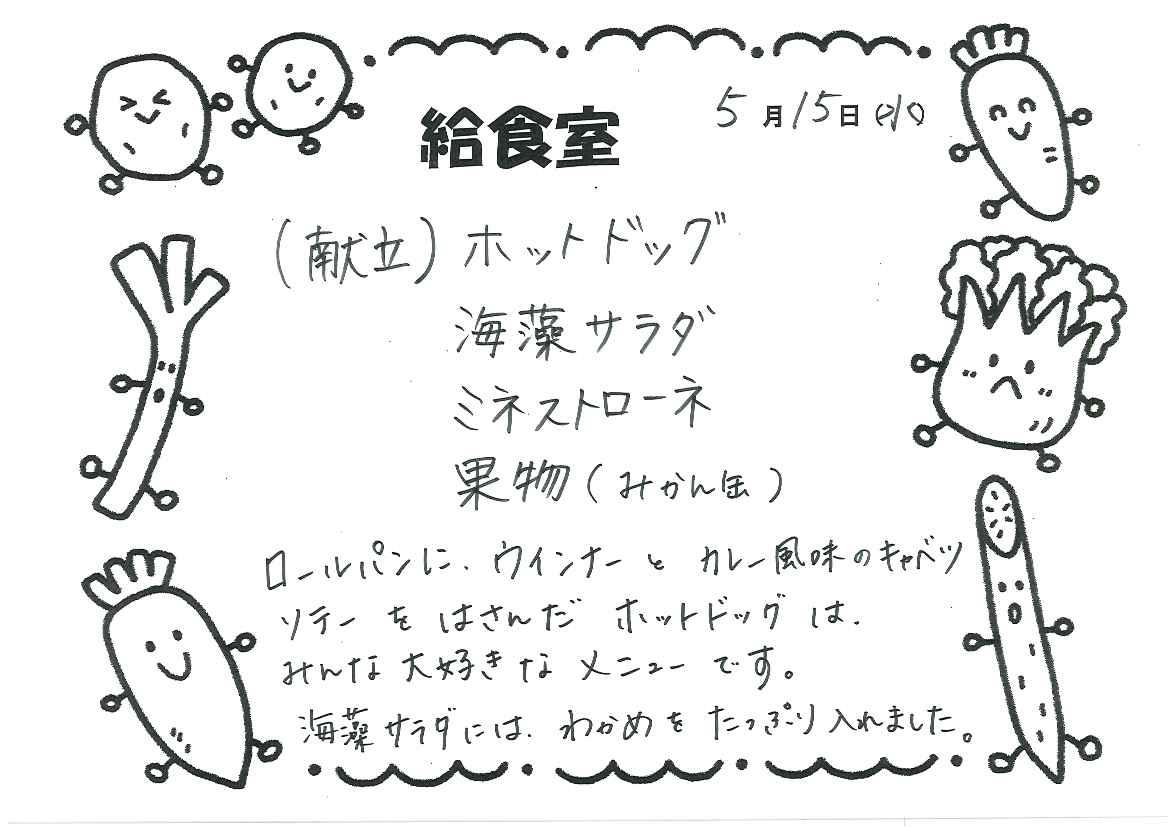 給食室
5月15日(水)
(献立) ホットドッグ
海藻サラダ
ミネストローネ
果物(みかん缶)
ロールパンに、ウインナーと カレー風味のキャベツ
ソテー を はさんだ ホットドッグ は、
みんな 大好き な メニュー です。
海藻サラダには、わかめを たっぷり 入れました。